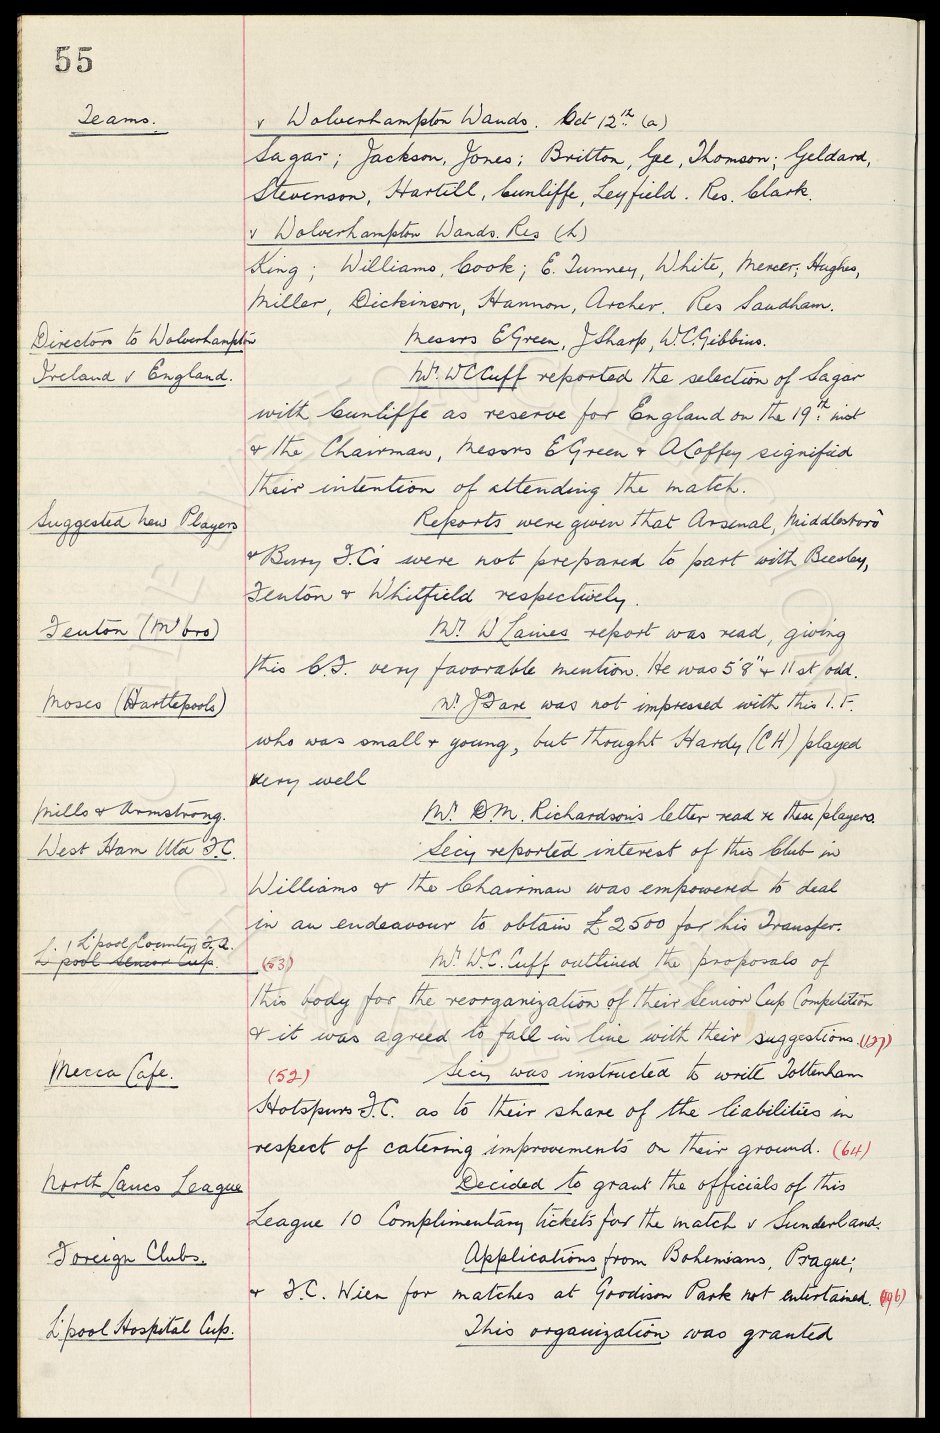 55
Teams. v Wolverhampton Wands. Oct 12th (a)
Sagar; Jackson, Jones; Britton, Gee, Thomson; Geldard,
Stevenson, Hartill, Cunliffe, Leyfield. Res. Clark.
v Wolverhampton Wands. Res (h)
King; Williams, Cook; E. Tunney, White, Mercer; Hughes,
Miller, Dickinson, Hannon, Archer. Res Sandham.
Directors to Wolverhampton Messrs E Green, J Sharp, W.C. Gibbins.
Ireland v England. Mr. W C Cuff reported the selection of Sagar
with Cunliffe as reserve for England on the 19th inst
& the Chairman, Messrs E Green & A Coffey signified
their intention of attending the match.
Suggested new Players Reports were given that Arsenal, Middlesboro
& Bury F.C's were not prepared to part with Beesley,
Fenton & Whitfield respectively.
Fenton (M'bro) Mr. W Laines report was read, giving
this C.F. very favorable mention. He was 5'8" & 11 st odd.
Moses (Hartlepools) Mr. J Fare was not impressed with this I.F.
who was small & young, but thought Hardy (C H) played
very well
Mills & Armstrong. Mr. D.M. Richardson's letter read re these players.
West Ham Utd F.C. Secy reported interest of this Club in
Williams & the Chairman was empowered to deal
in an endeavour to obtain £2500 for his Transfer.
L'pool County F.A.
L'pool Senior Cup. (53) Mr. W.C. Cuff outlined the proposals of
this body for the reorganization of their Senior Cup Competition
& it was agreed to fall in line with their suggestions. (127)
Mecca Cafe. (52) Secy was instructed to write Tottenham
Hotspurs F.C. as to their share of the liabilities in
respect of catering improvements on their ground. (64)
North Lancs League Decided to grant the officials of this
League 10 Complimentary tickets for the match v Sunderland.
Foreign Clubs. Applications from Bohemians, Prague;
& F.C. Wien for matches at Goodison Park not entertained. (196)
L'pool Hospital Cup. This organization was granted